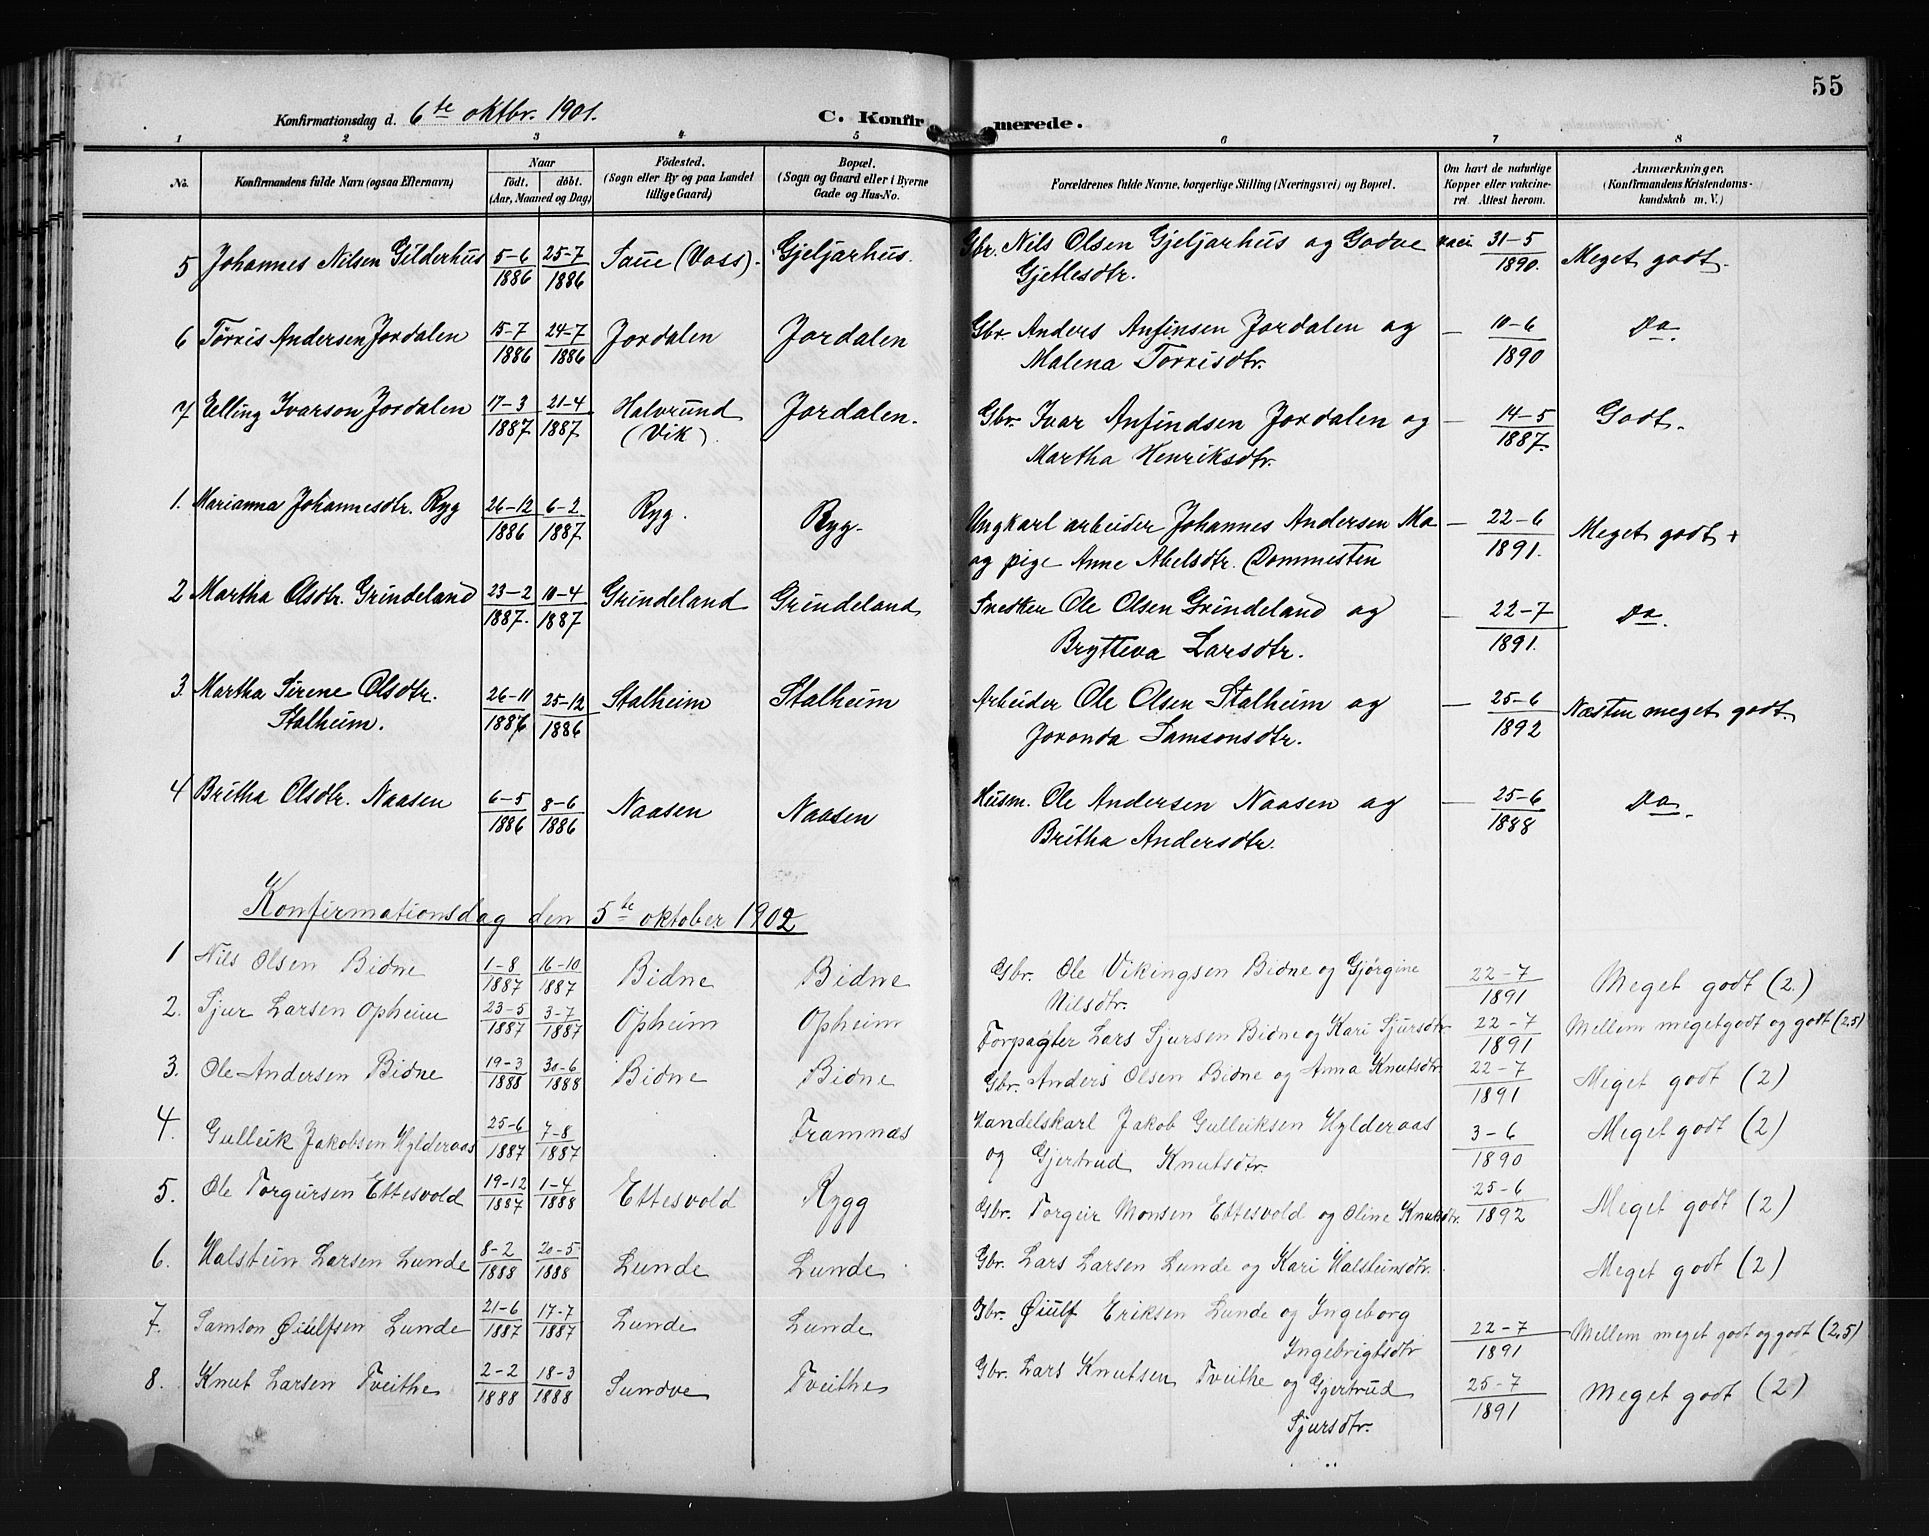 55
Konfirmationsdag d. 6te oktbr. 1901. C. Konfirmerede.
1 2 3 4 5 6 7 8
No. Konfirmandens fulde Navn (ogsaa Efternavn) Naar födt. döbt. (Aar, Maaned og Dag) Födested. (Sogn eller By og paa Landet tillige Gaard) Bopæl. (Sogn og Gaard eller i Byerne Gade og Hus-No. Forældrenes fulde Navne, borgerlige Stilling (Næringsvei) og Bopæl. Om havt de naturlige Kopper eller vakcineret. Attest herom. Anmærkninger, (Konfirmandens Kristendomskundskab m. V.)
5 Johannes Nilsen Gilderhus 5-6 1886 25-7 1886 Saue (Voss). Gjeljarhus. Gbr. Nils Olsen Gjeljarhus og Godve Gjetlesdtr. vaci 31-5 1890. Meget godt.
6 Torris Andersen Jordalen 15-7 1886 24-7 1886 Jordalen Jordalen Gbr. Anders Anfinsen Jordalen og Malena Torrisdtr. — 10-6 1890 Do.
7 Elling Ivarson Jordalen 17-3 1887 21-4 1887 Halvrund (Vik). Jordalen. Gbr. Ivar Anfindsen Jordalen og Martha Henriksdtr. — 14-5 1887. Godt.
1. Marianna Johannesdtr. Ryg 26-12 1886 6-2 1887 Ryg. Ryg. Ungkarl arbeider Johannes Andersen Mo og pige Anne Abelsdtr. Dommesten — 22-6 1891. Meget godt +
2 Martha Olsdtr. Grindeland 23-2 1887. 10-4 1887 Grindeland Grindeland Snedker Ole Olsen Grindeland og Brytteva Larsdtr. — 22-7 1891. Do.
3 Martha Sirene Olsdtr. Stalheim. 26-11 1886 25-12 1886 Stalheim Stalheim Arbeider Ole Olsen Stalheim og Joronda Samsonsdtr. — 25-6 1892 Næsten meget godt.
4 Britha Olsdtr. Naasen 6-5 1886 8-6 1886 Naasen Naasen Husm. Ole Andersen Naasen og Britha Andersdtr. — 25-6 1888 Do.
Konfirmationsdag den 5te oktober 1902
1 Nils Olsen Bidne 1-8 1887 16-10 1887 Bidne Bidne Gbr. Ole Vikingsen Bidne og Gjørgine Nilsdtr. 22-7 1891 Meget godt (2.)
2. Sjur Larsen Opheim 23-5 1887 3-7 1887 Opheim Opheim Forpagter Lars Sjursen Bidne og Kari Sjursdtr. 22-7 1891 Mellem megetgodt og godt (2,5)
3. Ole Andersen Bidne 19-3 1888 30-6 1888 Bidne Bidne Gbr. Anders Olsen Bidne og Anna Knutsdtr 22-7 1891 Meget godt (2)
4. Gulleik Jakobsen Hylderaas 25-6 1887 7-8 1887 Framnæs Handelskarl Jakob Gulleiksen Hylderaas og Gjertrud Knutsdtr. 3-6 1890 Meget godt (2)
5. Ole Torgeirsen Ettesvold 19-12 1887 1-4 1888 Ettesvold Rygg Gbr. Torgeir Monsen Ettesvold og Oline Knutsdtr. 25-6 1892 Meget godt (2)
6. Halstein Larsen Lunde 8-2 1888 20-5 1888 Lunde Lunde Gbr. Lars Larsen Lunde og Kari Halsteinsdtr. Meget godt (2)
7. Samson Øiulfsen Lunde 21-6 1887 17-7 1887 Lunde Lunde Gbr. Øiulf Eriksen Lunde og Ingeborg Ingebrigtsdtr 22-7 1891 Mellem meget godt og godt (2,5)
8. Knut Larsen Tveithe 2-2 1888 18-3 1888 Sundve Tveithe Gbr. Lars Knutsen Tveithe og Gjertrud Sjursdtr. 25-7 1891 Meget godt (2)